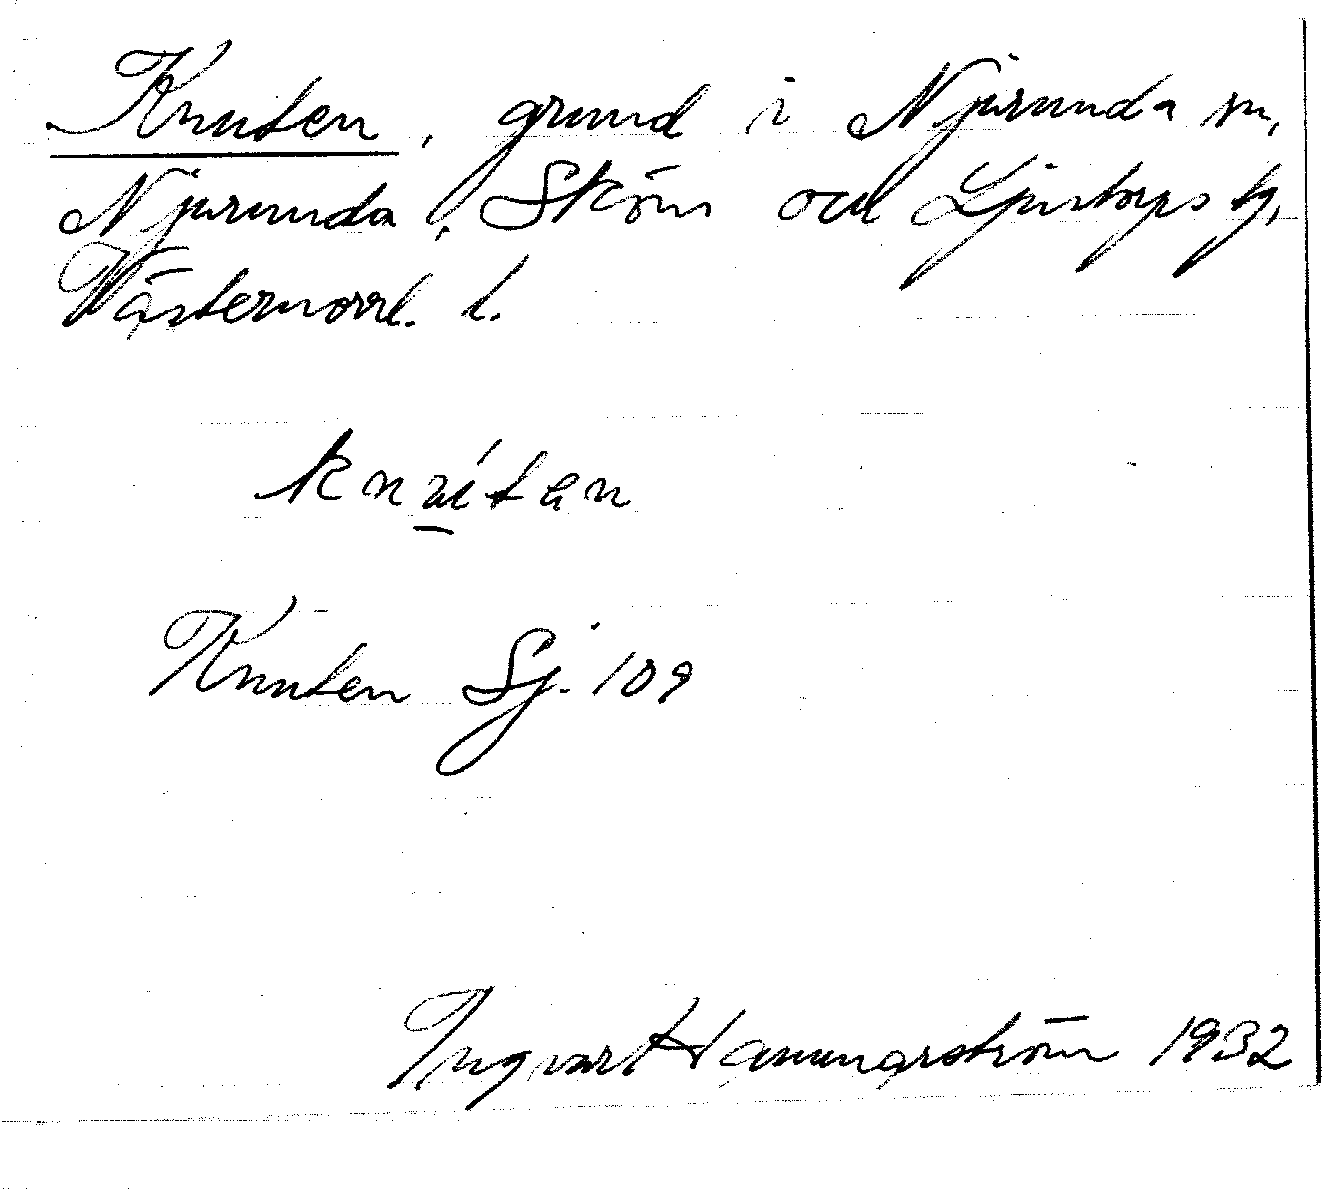 Knuten, grund i Njurunda sn,
Njurunda, Sköns och Ljustorps tg,
Västernorrl. l.
Knuten Sj. 109
Ingvar Hammarström 1932